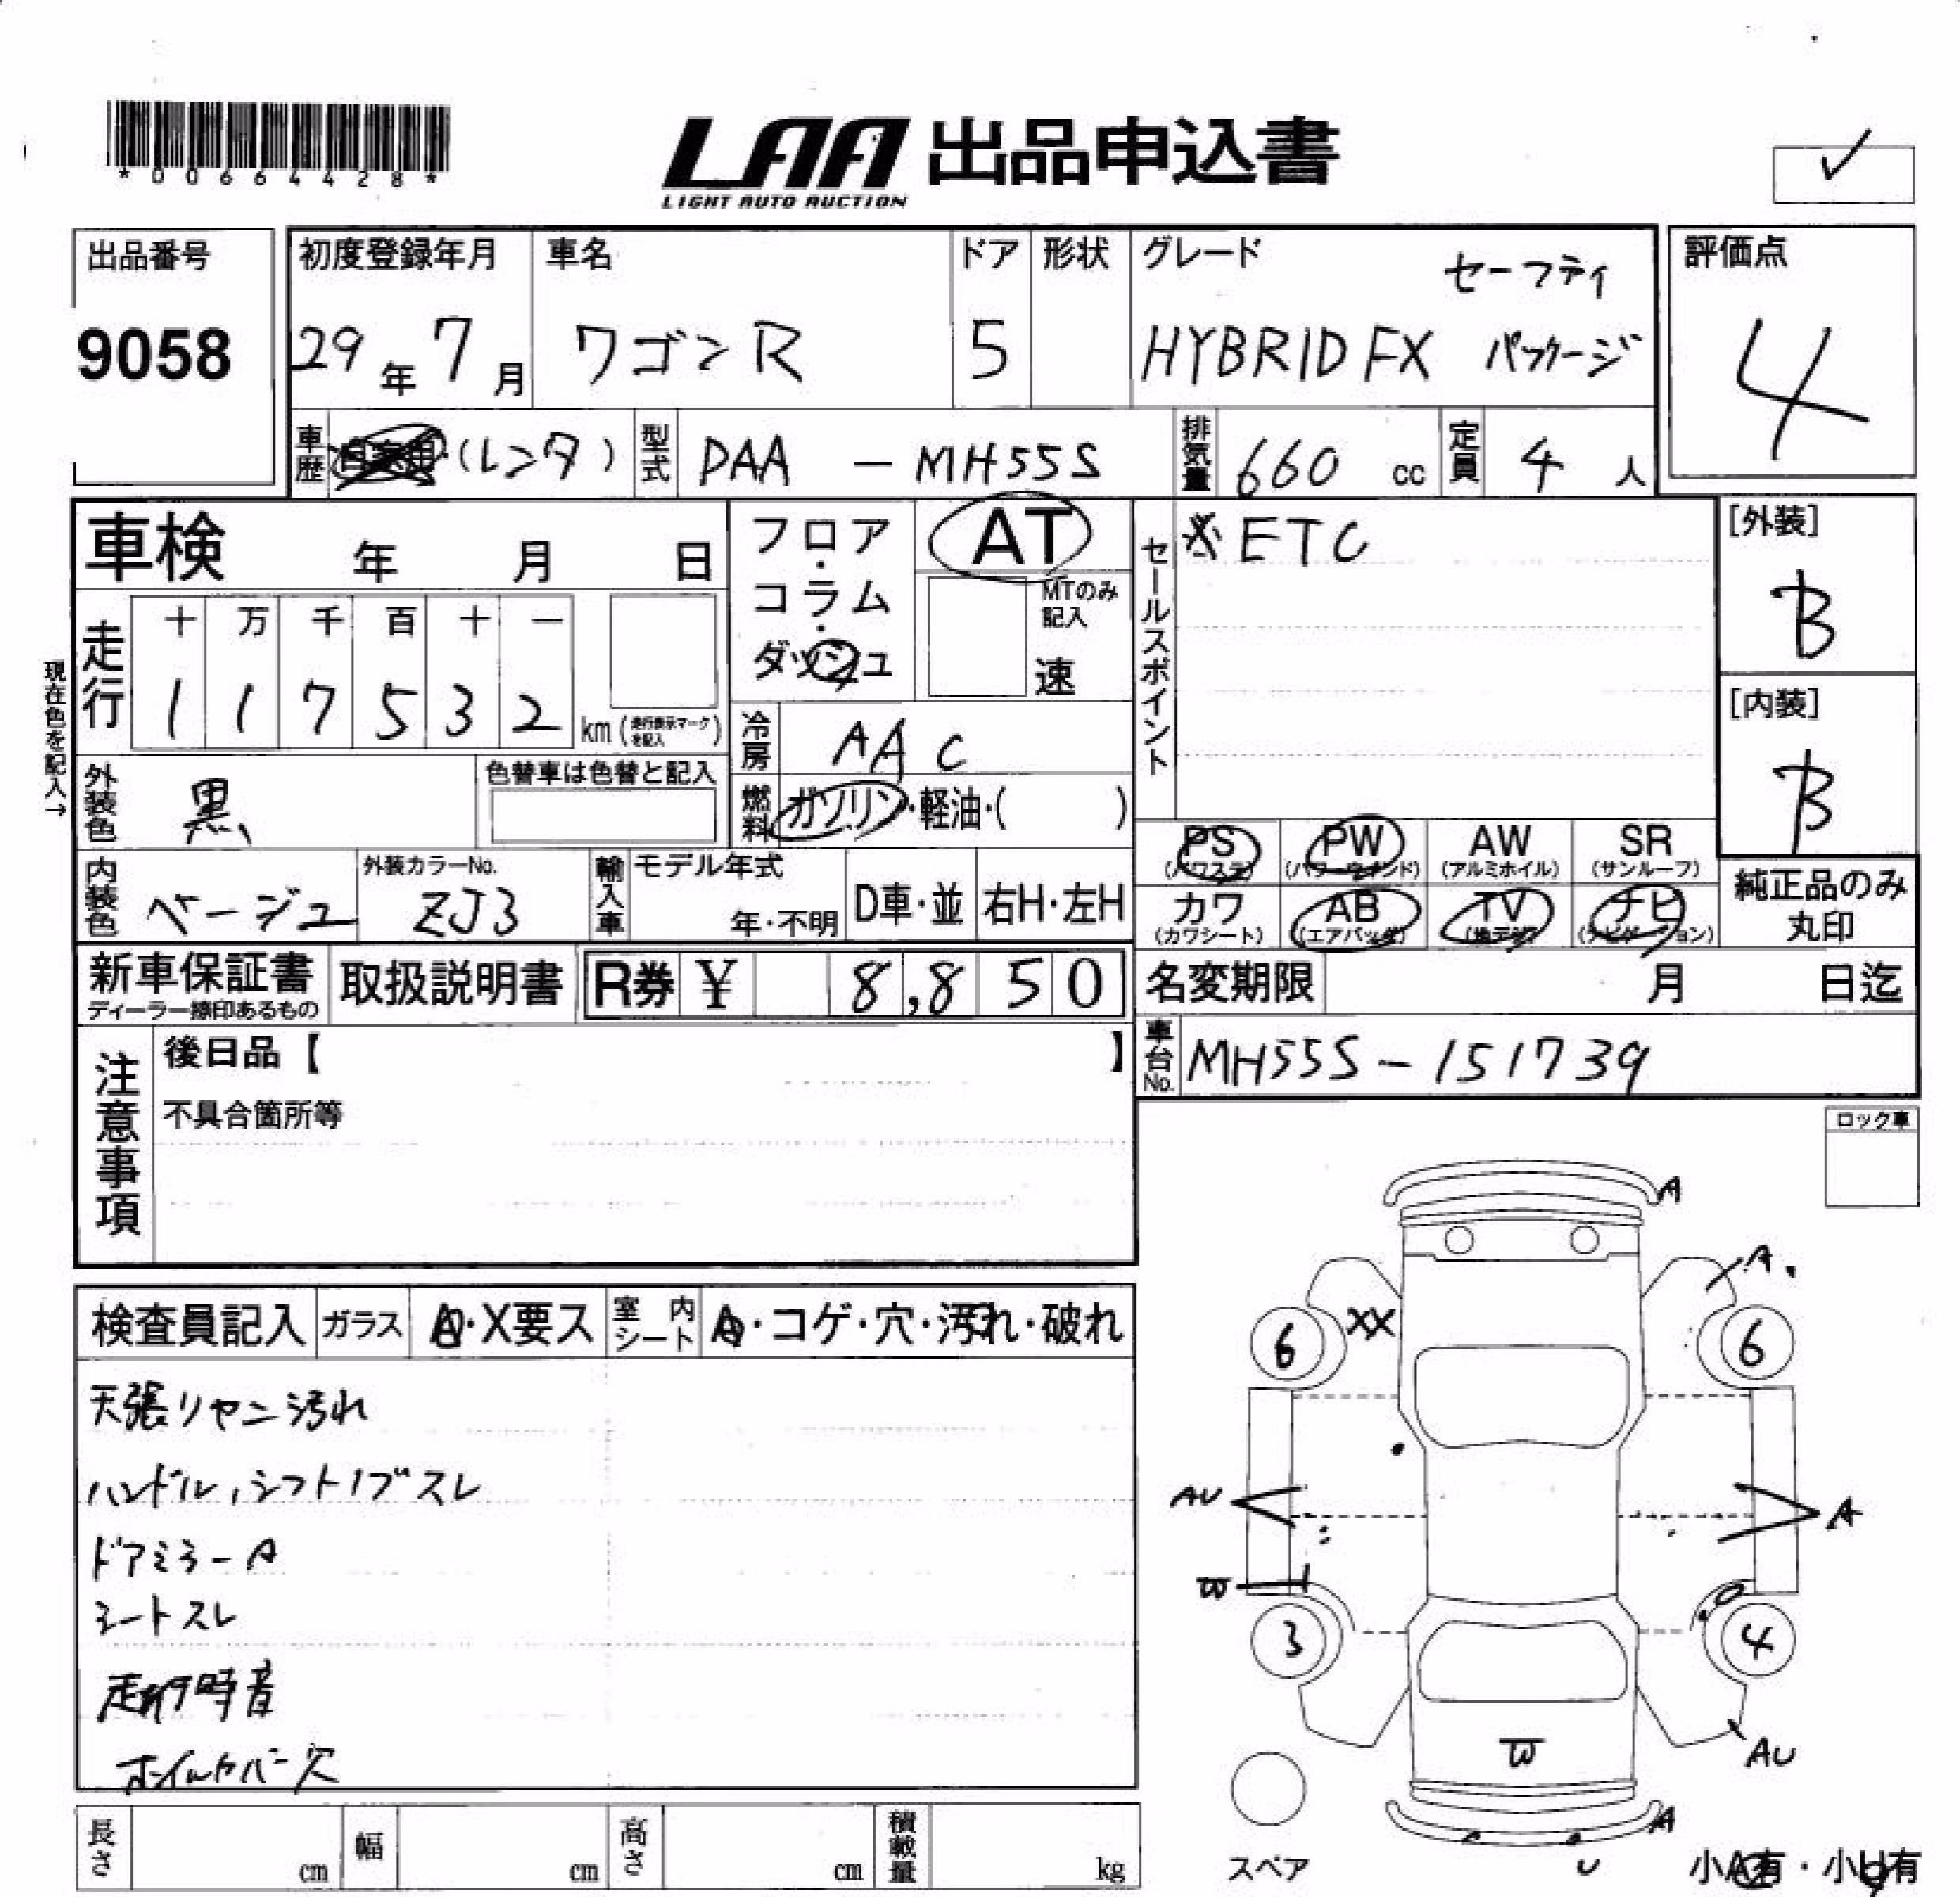 *00664428*
LAA 出品申込書
LIGHT AUTO AUCTION
✓
出品番号
9058
初度登録年月
29年 7月
車名
ワゴンR
ドア
5
形状
グレード
セーフティ
HYBRID FX パッケージ
評価点
4
車歴 自家用・(レンタ)
型式 DAA - MH55S
排気量 660 cc
定員 4 人
車検 年 月 日
フロア・コラム・ダッシュ
AT
MTのみ記入
速
セールスポイント
※ETC
[外装]
B
[内装]
B
現在色を記入→
走行
十 万 千 百 十 一
1 1 7 5 3 2 km (走行表示マークを記入)
冷房 AAC
外装色 黒
色替車は色替と記入
燃料 ガソリン・軽油・( )
PS (パワステ)
PW (パワーウインド)
AW (アルミホイル)
SR (サンルーフ)
内装色 ベージュ
外装カラーNo.
ZJ3
輸入車 モデル年式
年・不明
D車・並
右H・左H
カワ (カワシート)
AB (エアバッグ)
TV (地デジ)
ナビ (ナビゲーション)
純正品のみ丸印
新車保証書
ディーラー捺印あるもの
取扱説明書
R券 ¥ 8,850
名変期限 月 日迄
車台No. MH55S-151739
注意事項
後日品【 】
不具合箇所等
ロック車
検査員記入
ガラス A・X要ス
室内シート A・コゲ・穴・汚れ・破れ
天張リヤン汚れ
ハンドル,シフトノブスレ
ドアミラーA
シートスレ
走行時音
ホイルカバー欠
A
A
XX
6
6
AU
A
W
3
4
AU
W
A
U
スペア
小A有・小U有
長さ cm
幅 cm
高さ cm
積載量 kg